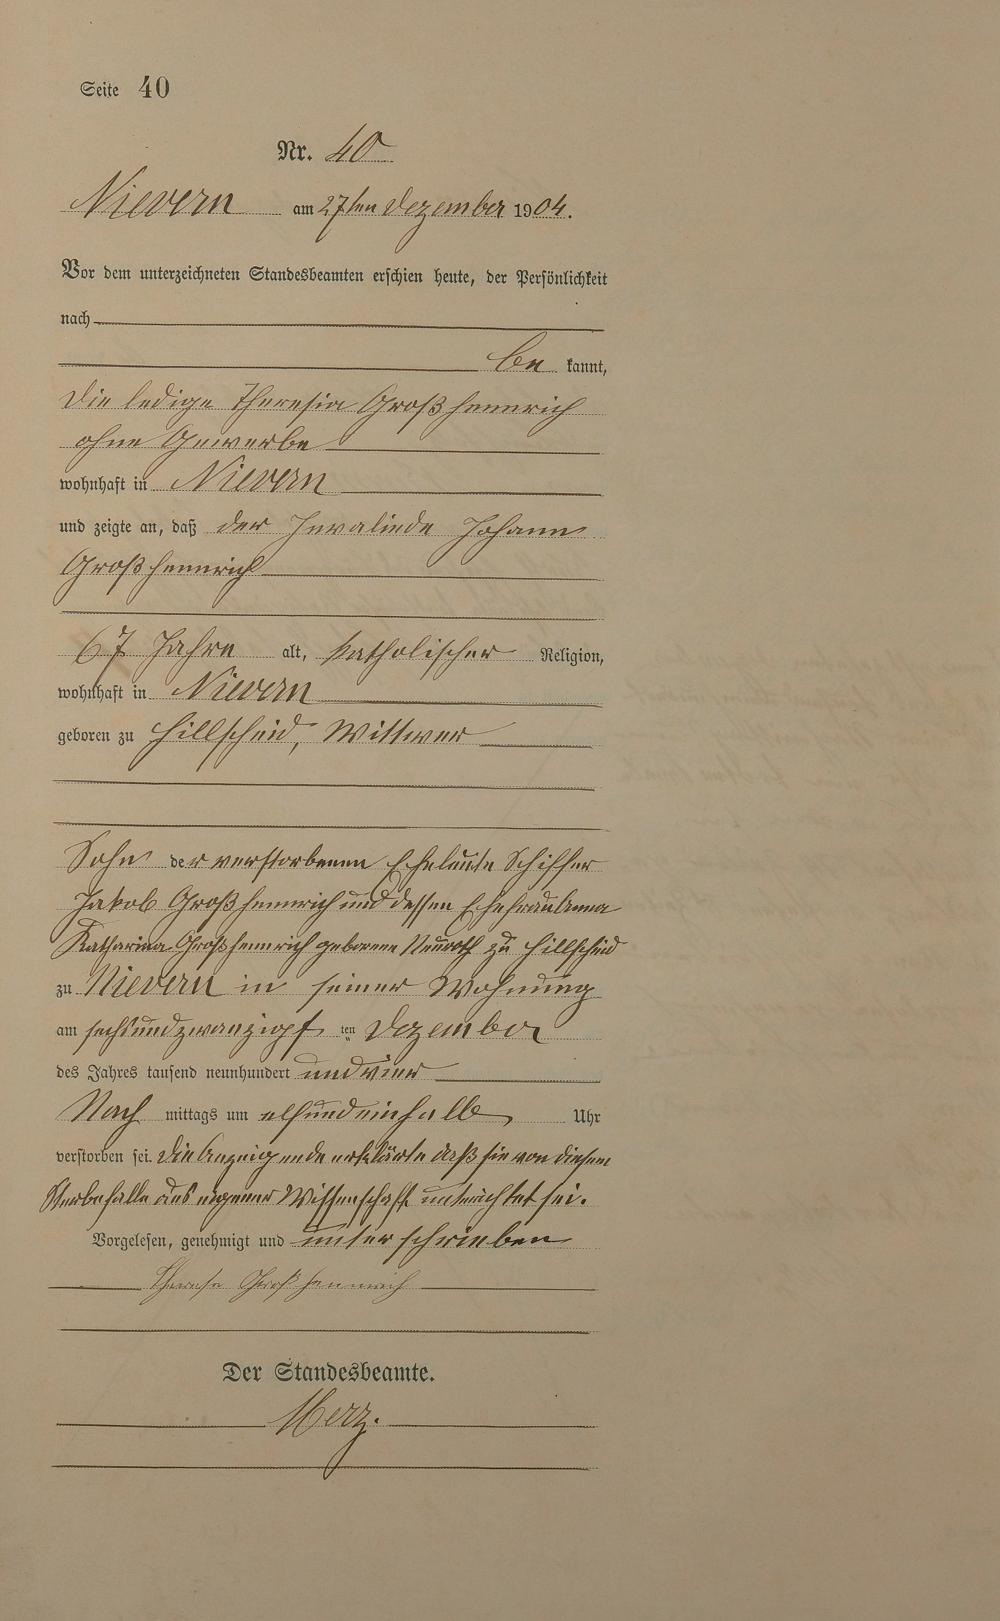 Seite 40
Nr. 40
Nievern am 27ten Dezember 1904.
Vor dem unterzeichneten Standesbeamten erschien heute, der Persönlichkeit
nach
be kannt,
die ledige Theresia Großhennrich
ohne Gewerbe
wohnhaft in Nievern
und zeigte an, daß der Invaliede Johann
Großhennrich
67 Jahre alt, katholischer Religion,
wohnhaft in Nievern
geboren zu Hillscheid, Wittwer
Sohn der verstorbenen Eheleute Schiffer
Jakob Großhennrich und dessen Ehefrau Anna
Katharina Großhennrich geborene Neuroth zu Hillscheid
zu Nievern in seiner Wohnung
am sechsundzwanzigst ten Dezember
des Jahres tausend neunhundert und vier
Nach mittags um elfundeinhalb Uhr
verstorben sei. Die Anzeigende erklärte daß sie von diesem
Sterbefalle aus eigener Wissenschaft unterichtet sei.
Vorgelesen, genehmigt und unterschrieben
Therese Großhennrich
Der Standesbeamte.
Merz.